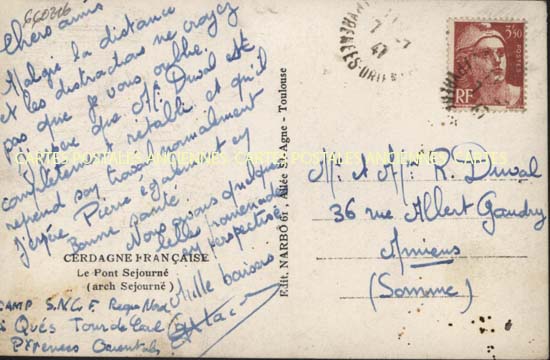 660216
Chers amis
Malgré la distance
et les distractions ne croyez
pas que je vous oublie.
J'espère que Mr Duval est
complètement rétabli et qu'il
reprend son travail normalement
J'espère Pierre également en
Bonne santé.
Nous avons quelques
belles promenades
en perspective
Mille baisers
CERDAGNE FRANÇAISE
Le Pont Sejourné
(arch Sejourné)
CAMP S.N.C.F. Region Nord
Qués Tour de Carol
Pyrenees Orientales
Edit. NARBO 61, Allée St-Agne - Toulouse
7-7
47
ORIEN
3F50
POSTES
RF
M. et Me R. Duval
36 rue Albert Gaudry
Amiens
(Somme)
CARTES POSTALES ANCIENNES CARTES POSTALES ANCIENNES CARTES